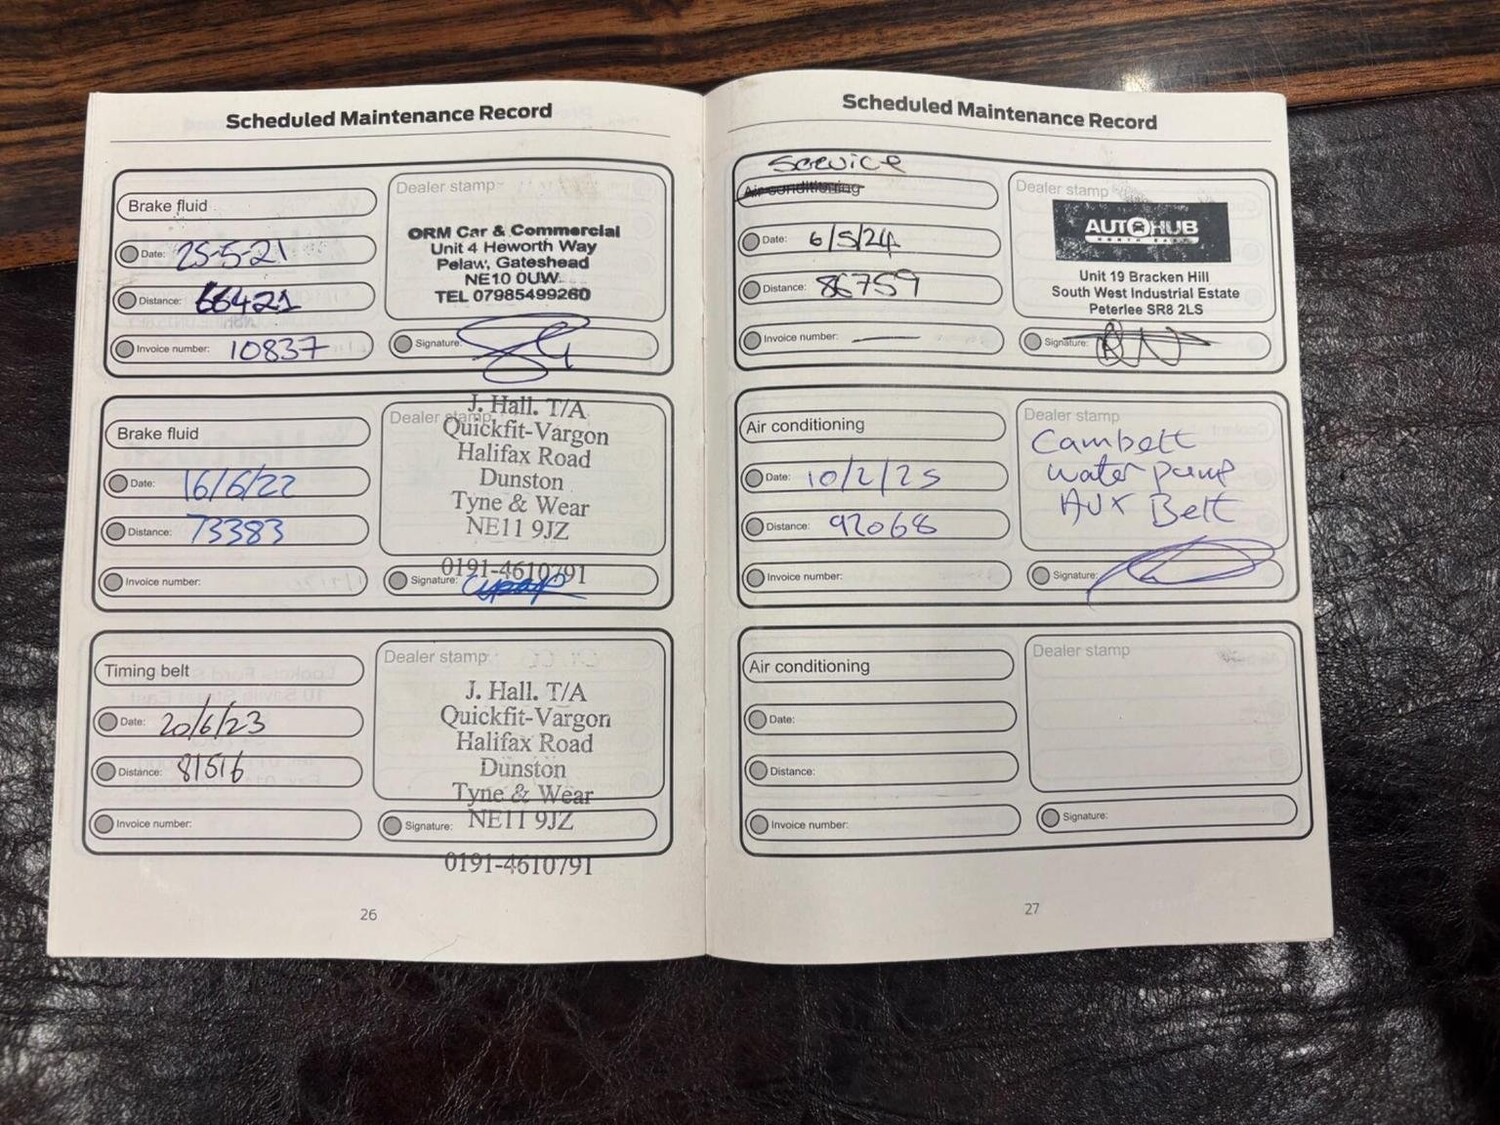 Scheduled Maintenance Record
Brake fluid
Date: 25-5-21
Distance: 66421
Invoice number: 10837
Dealer stamp
ORM Car & Commercial
Unit 4 Heworth Way
Pelaw, Gateshead
NE10 0UW
TEL 07985499260
Signature:
Brake fluid
Date: 16/6/22
Distance: 73383
Invoice number:
Dealer stamp
J. Hall. T/A
Quickfit-Vargon
Halifax Road
Dunston
Tyne & Wear
NE11 9JZ
0191-4610791
Signature:
Timing belt
Date: 20/6/23
Distance: 81516
Invoice number:
Dealer stamp
J. Hall. T/A
Quickfit-Vargon
Halifax Road
Dunston
Tyne & Wear
NE11 9JZ
Signature:
0191-4610791
26
Scheduled Maintenance Record
Service
Air conditioning
Date: 6/5/24
Distance: 86759
Invoice number: —
Dealer stamp
AUTOHUB
NORTH EAST
Unit 19 Bracken Hill
South West Industrial Estate
Peterlee SR8 2LS
Signature:
Air conditioning
Date: 10/2/25
Distance: 92068
Invoice number:
Dealer stamp
Cambelt
water pump
AUX Belt
Signature:
Air conditioning
Date:
Distance:
Invoice number:
Dealer stamp
Signature:
27